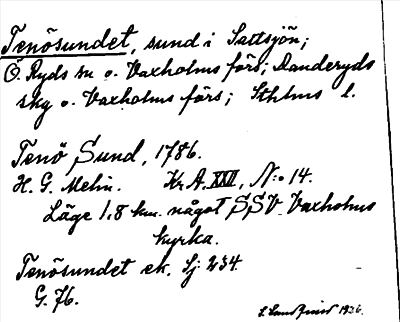 Tenösundet, sund i Saltsjön;
Ö. Ryds sn o. Vaxholms förs; Danderyds
skg o. Vaxholms förs; Sthlms l.
Tenö Sund, 1786.
H. G. Melin. Kr.A. XXVI, N:o 14.
Läge 1,8 km. något SSV Vaxholms
kyrka.
Tenösundet ek. Sj 234.
G. 76.
1936.